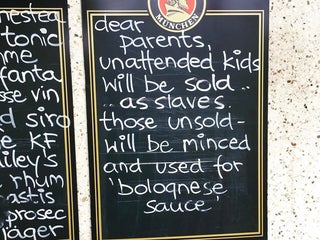 nestea
tonic
me
fanta
sse vin
d siro
e KF
iley's
rhum
astis
prosec
jäger
MÜNCHEN
dear
parents,
unattended kids
will be sold..
..as slaves.
those unsold-
will be minced
and used for
'bolognese
sauce'